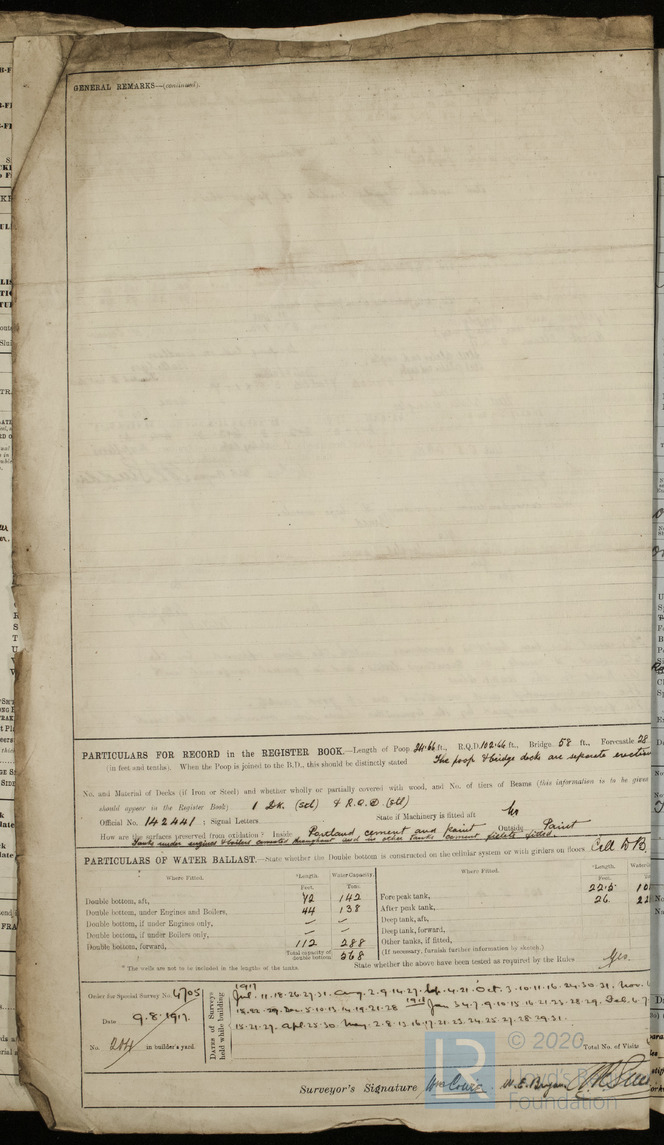 GENERAL REMARKS—(continued).
PARTICULARS FOR RECORD in the REGISTER BOOK.—Length of Poop 24.66 ft., R.Q.D. 102.66 ft., Bridge 58 ft., Forecastle 28
(in feet and tenths). When the Poop is joined to the B.D., this should be distinctly stated The poop & bridge decks are separate erections
No. and Material of Decks (if Iron or Steel) and whether wholly or partially covered with wood, and No. of tiers of Beams (this information is to be given
should appear in the Register Book) 1 Dk. (Stl) & R.Q.D (Stl)
Official No. 142441 ; Signal Letters State if Machinery is fitted aft No
How are the surfaces preserved from oxidation? Inside Portland cement and paint Outside Paint
Tanks under engines & boilers cemented throughout and in other tanks cement fillets fitted
PARTICULARS OF WATER BALLAST.—State whether the Double bottom is constructed on the cellular system or with girders on floors Cell D B.
Where Fitted. *Length. Water Capacity. Where Fitted. *Length.
Feet. Tons. Feet.
Double bottom, aft, 72 142 Fore peak tank, 22.5
Double bottom, under Engines and Boilers, 44 138 After peak tank, 26
Double bottom, if under Engines only, — — Deep tank, aft,
Double bottom, if under Boilers only, — — Deep tank, forward,
Double bottom, forward, 112 288 Other tanks, if fitted,
Total capacity of double bottom 568 (If necessary, furnish further information by sketch.)
* The wells are not to be included in the lengths of the tanks. State whether the above have been tested as required by the Rules Yes.
Order for Special Survey No. 4705
Date 9.8.1917.
No. 204 in builder's yard.
Dates of Surveys held while building
1917
Jul. 11.18.26.27.31. Aug. 2.9.14.27. Sep. 4.21. Oct. 3.10.11.16.24.30.31. Nov.
15.22.29. Dec. 5.10.13.14.19.21.28 1918 Jan 3.4.7.9.10.15.16.21.23.28.29. Feb. 6.7
15.21.27. Apl. 25.30. May. 2.8.13.16.17.21.23.24.25.27.28.29.31.
Total No. of Visits
Surveyor's Signature Wm Cowie. W. E. Bryan
LR © 2020
Lloyd's Register
Foundation